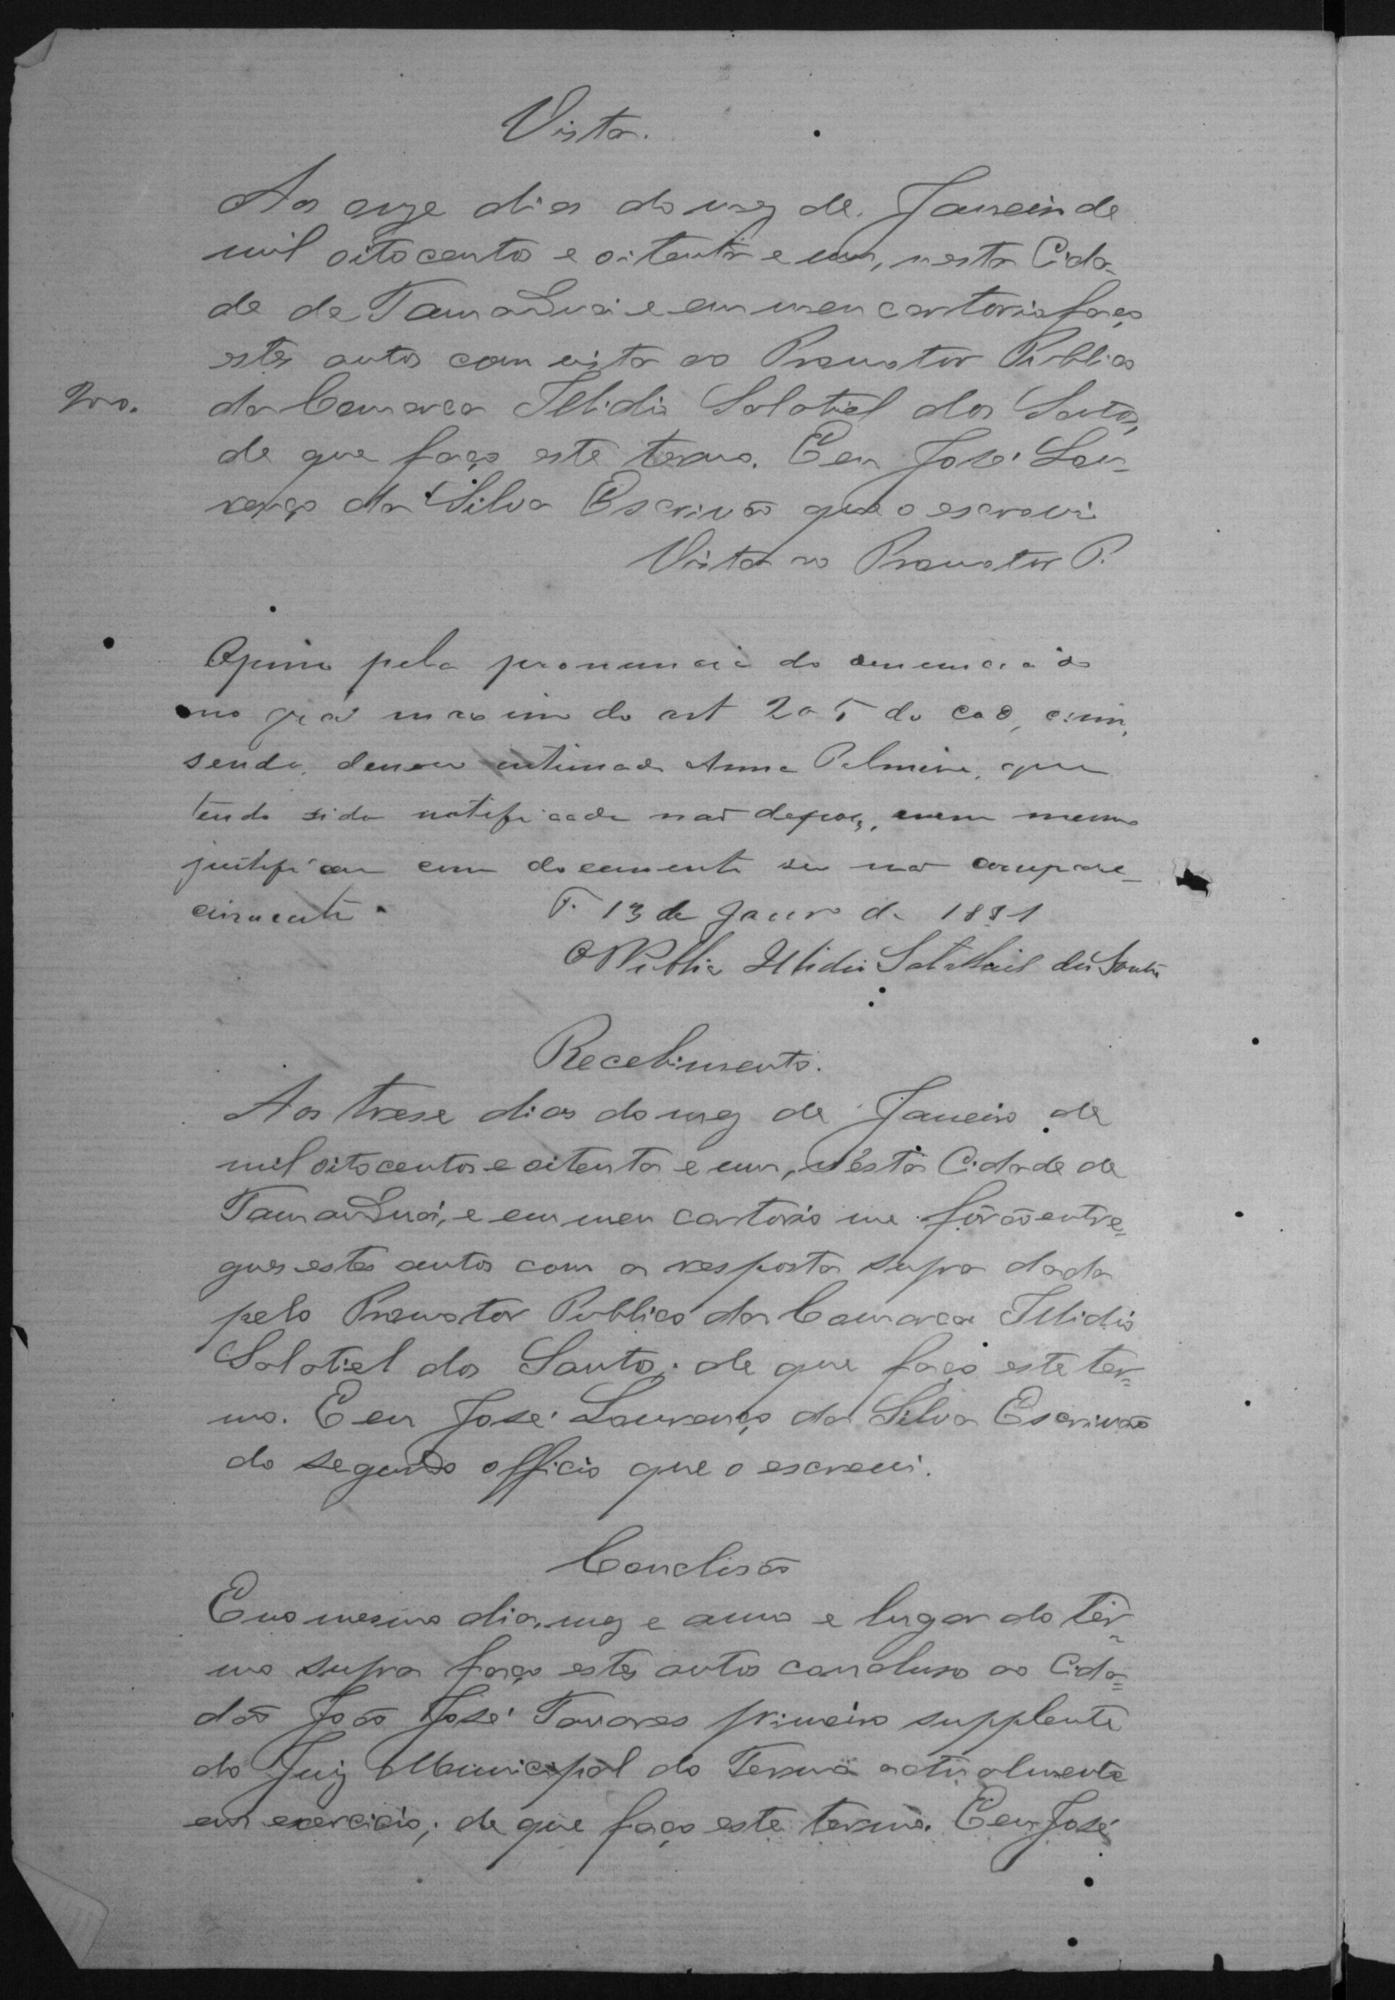 Vista.
Aos onze dias do mez de Janeiro de
mil oitocentos e oitenta e um, nesta Cida-
de de Tamanduá e em meu cartorio faço
estes autos com vista ao Promotor Publico
da Comarca Illidio Salatiel dos Santos,
de que faço este termo. E eu José Lou-
renço da Silva Escrivão que o escrevi
Vista ao Promotor P.
Opino pela pronuncia do denunciado
no gráo maximo do art 205 do cod, crim,
sendo intimada Anna Palmira, que
tendo sido notificada não depoz, nem mesmo
justificou com documento seu não compare-
cimento.
T. 13 de Janro de 1881
O P Publico Illidio Salathiel dos Santos
Recebimento.
Aos trese dias do mez de Janeiro de
mil oitocentos e oitenta e um, nesta Cidade de
Tamanduá, e em meu cartorio me forão entre-
gues estes autos com a resposta supra dada
pelo Promotor Publico da Comarca Illidio
Salatiel dos Santos; de que faço este ter-
mo. E eu José Lourenço da Silva Escrivão
do segundo officio que o escrevi.
Conclusão
E no mesmo dia, mez e anno e lugar do ter-
mo supra faço estes autos concluso ao Cida-
dão João José Tavares primeiro supplente
do Juiz Municipal do Termo actualmente
em exercicio; de que faço este termo. E eu José